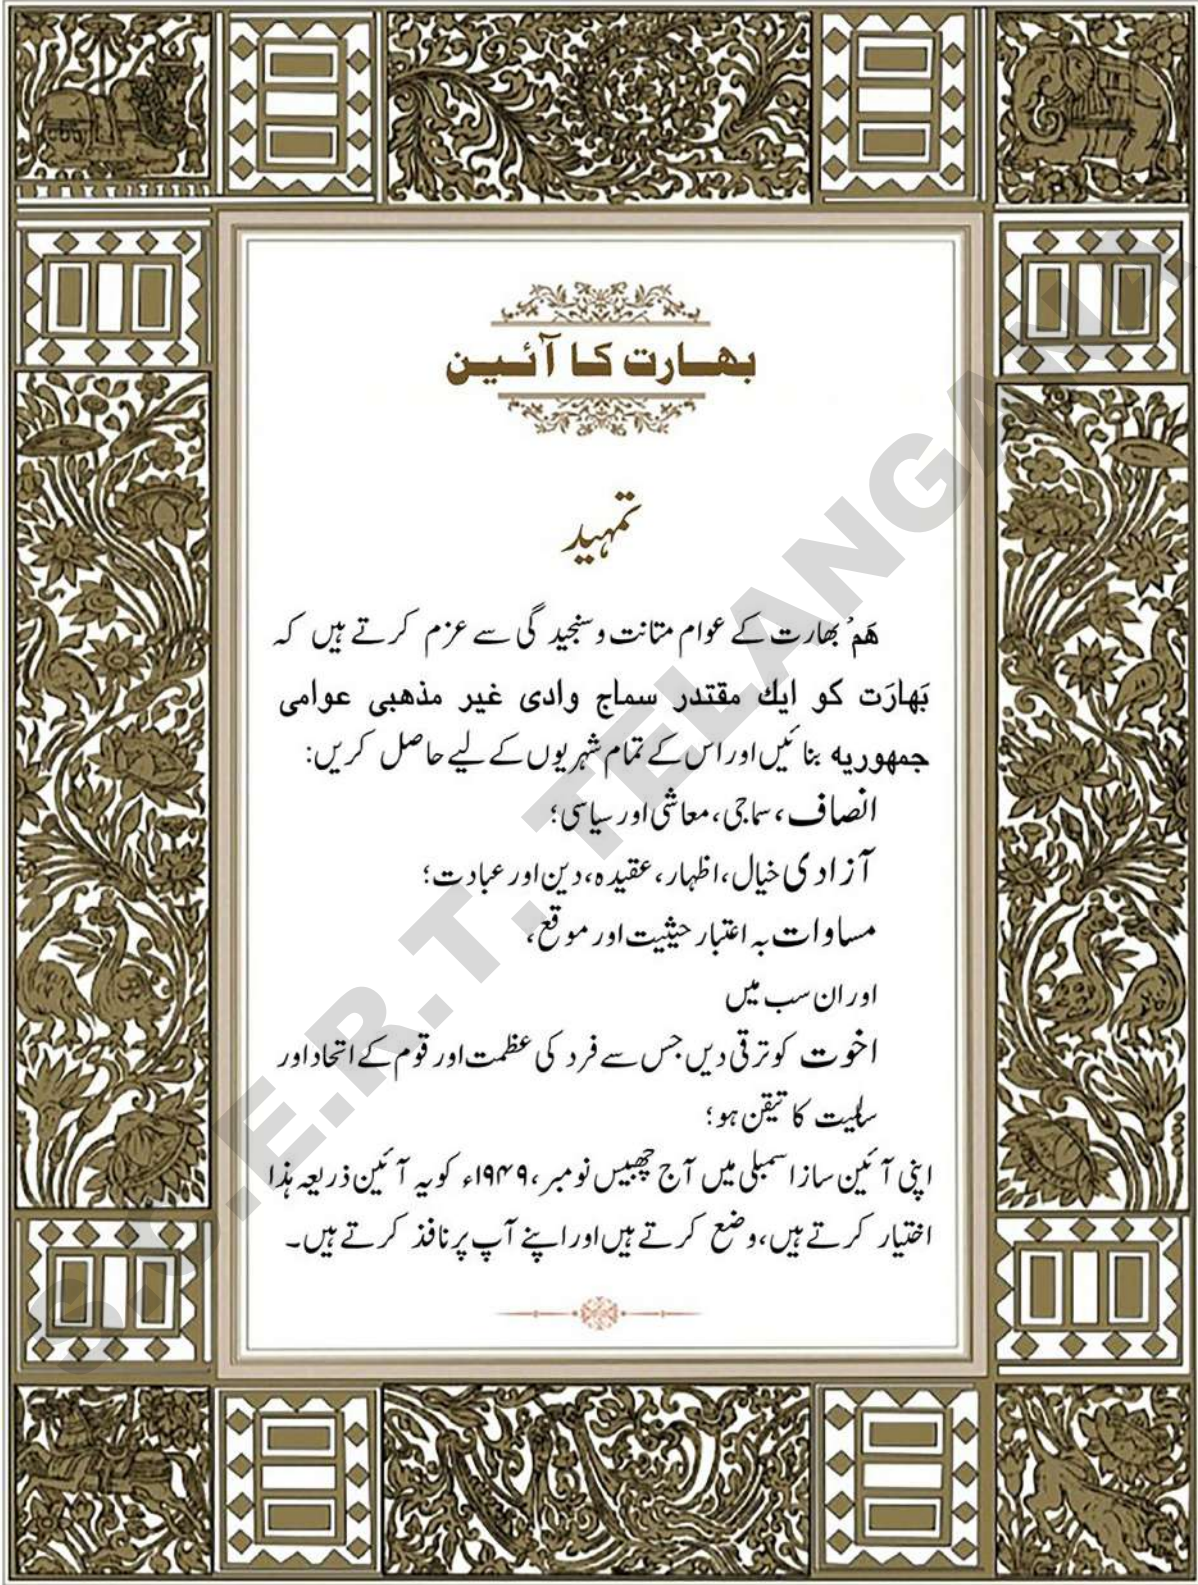 بھارت کا آئین
تمہید
ہَم بھارت کے عوام متانت و سنجیدگی سے عزم کرتے ہیں کہ
بَھارَت کو ایک مقتدر سماج وادی غیر مذہبی عوامی
جمہوریہ بنائیں اور اس کے تمام شہریوں کے لیے حاصل کریں:
انصاف، سماجی، معاشی اور سیاسی؛
آزادی خیال، اظہار، عقیدہ، دین اور عبادت؛
مساوات بہ اعتبار حیثیت اور موقع،
اور ان سب میں
اخوت کو ترقی دیں جس سے فرد کی عظمت اور قوم کے اتحاد اور
سالمیت کا تیقن ہو؛
اپنی آئین ساز اسمبلی میں آج چھبیس نومبر، ۱۹۴۹ء کو یہ آئین ذریعہ ہٰذا
اختیار کرتے ہیں، وضع کرتے ہیں اور اپنے آپ پر نافذ کرتے ہیں۔
S.C.E.R.T. TELANGANA